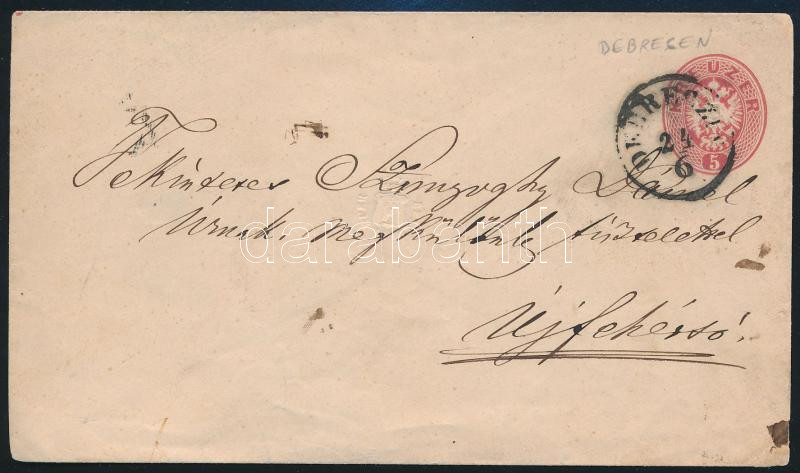 DEBRECEN
KREUZER
5
DEBRECZIN
24
6
Tekintetes Szunyoghy Dániel
Úrnak, megkülömb tisztelettel
Újfehértó.
darabanth